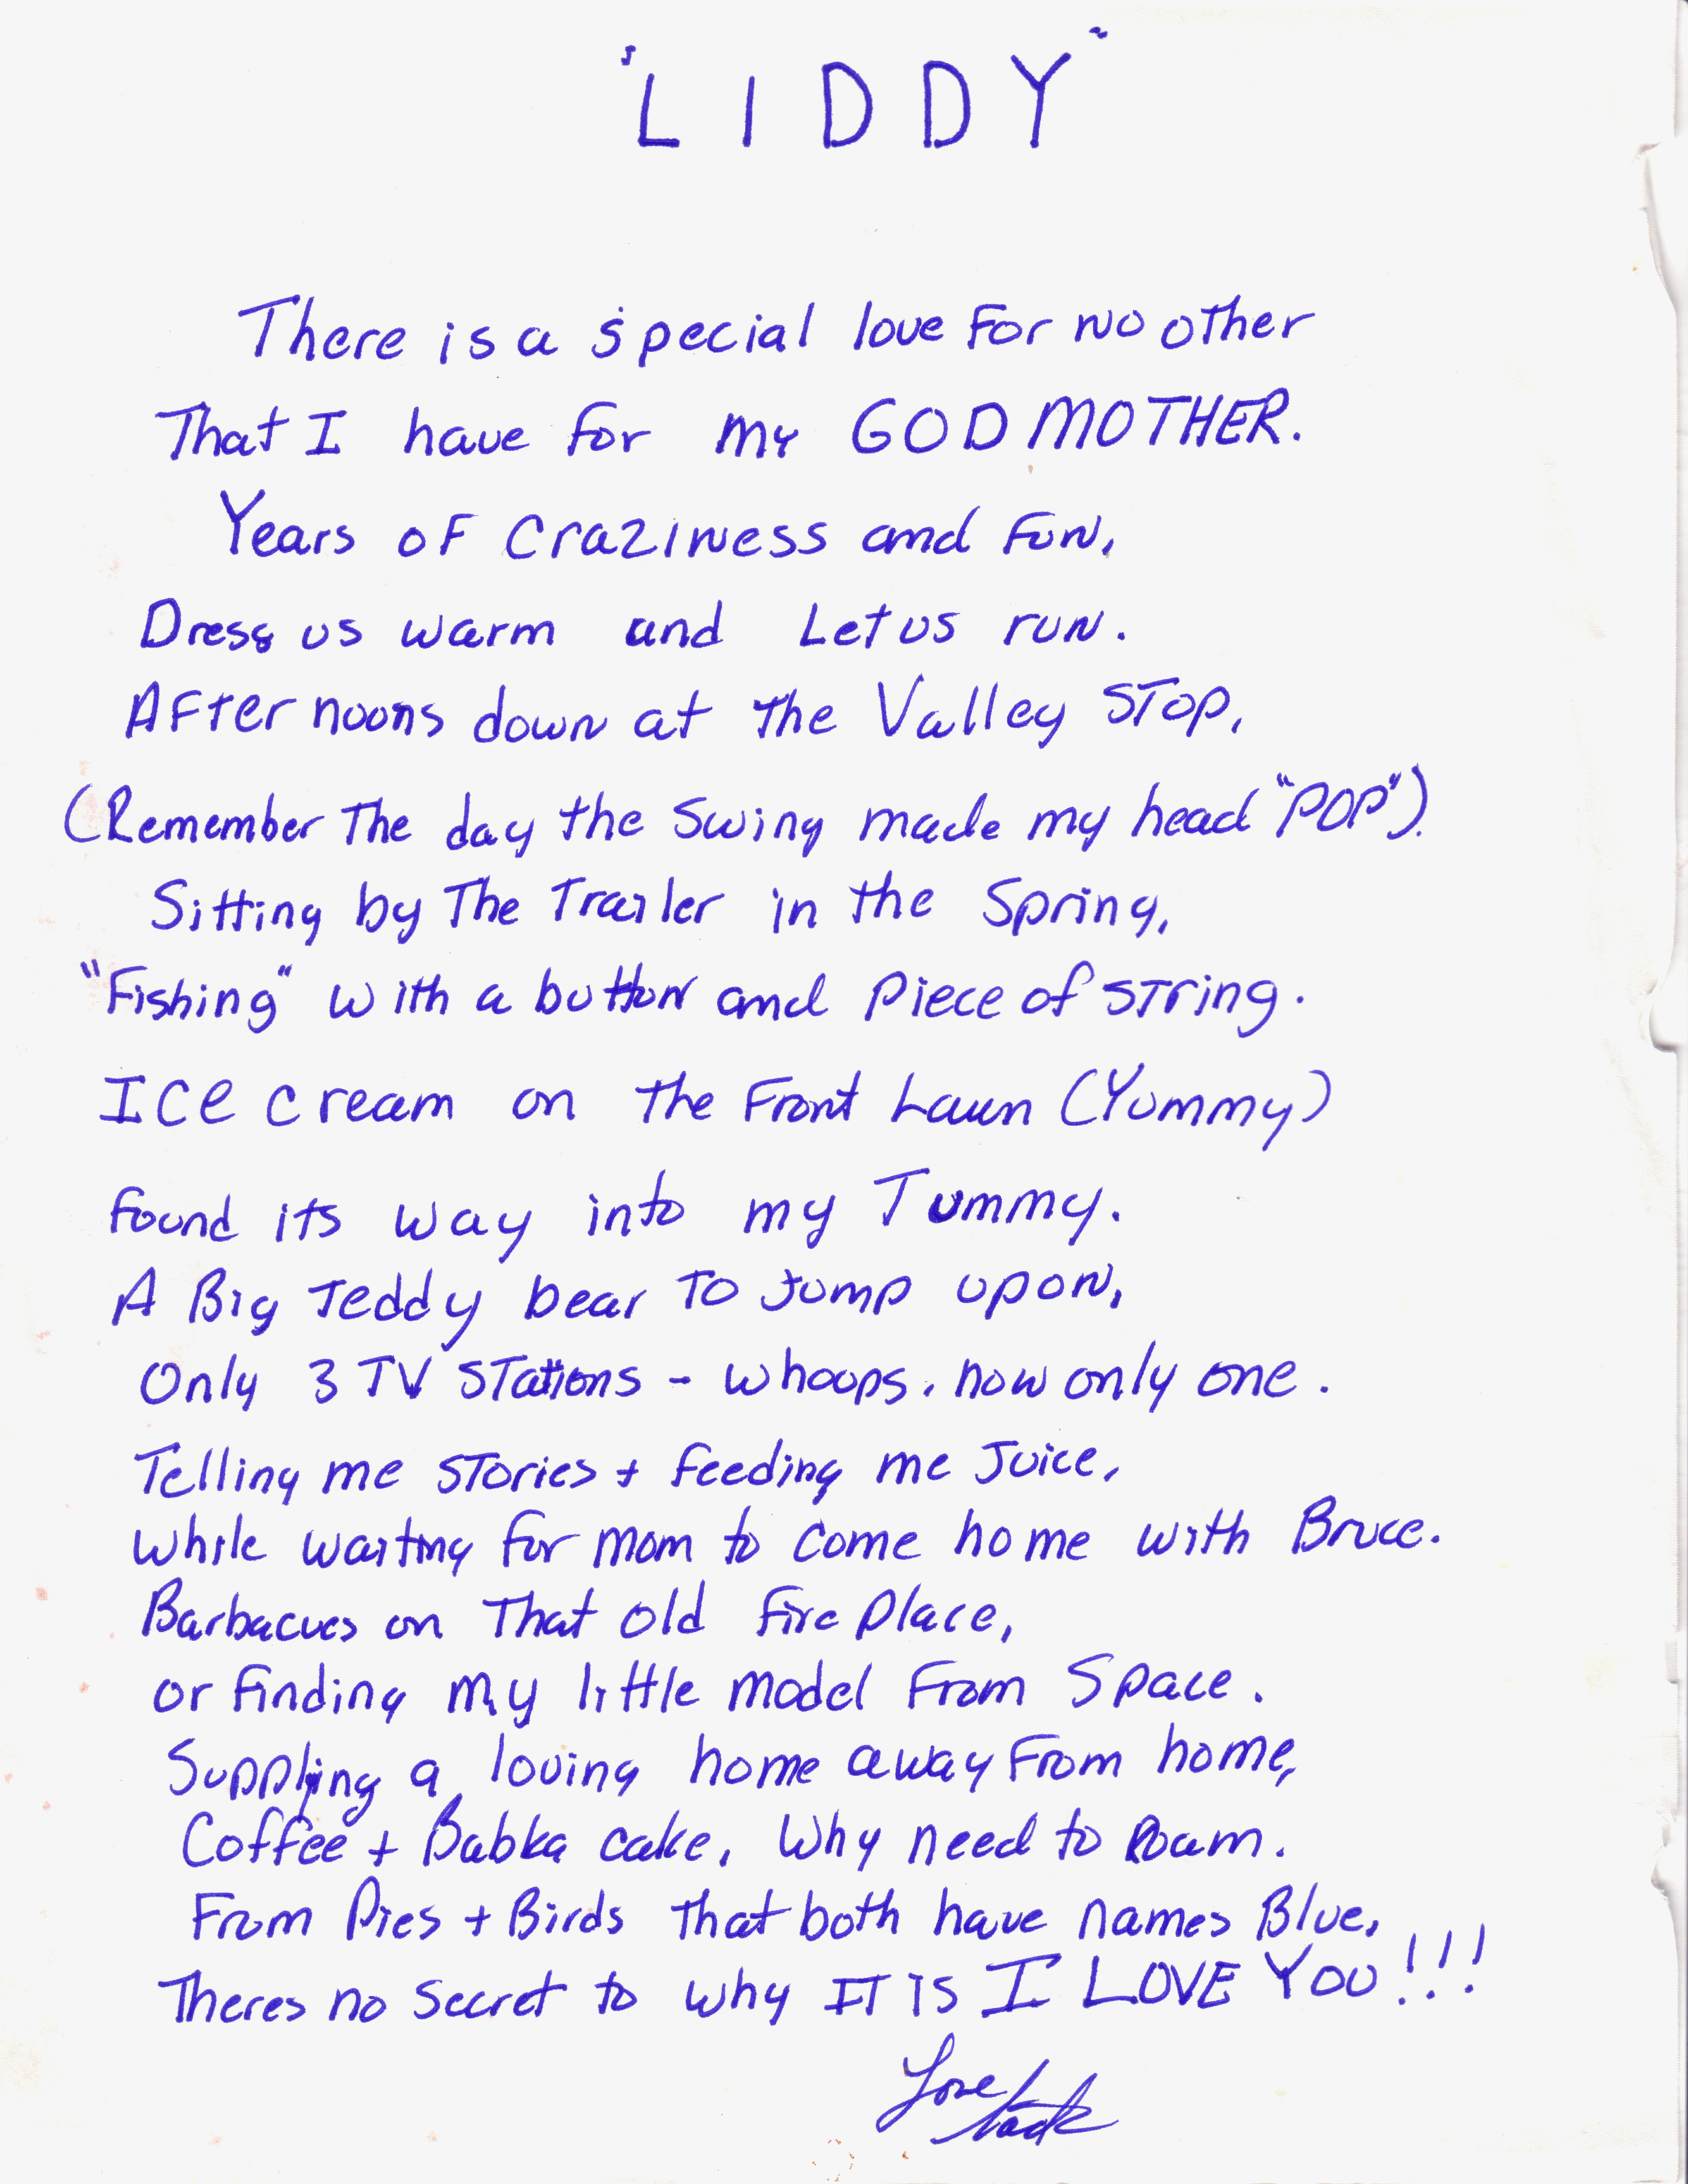 "LIDDY"
There is a special love For no other
That I have for my GODMOTHER.
Years of Craziness and Fun,
Dress us warm and Let us run.
AFternoons down at the Valley Stop,
(Remember The day the Swing made my head "POP").
Sitting by The Trailer in the Spring,
"Fishing" with a button and Piece of string.
ICe cream on the Front Lawn (Yummy)
Found its way into my Tummy.
A Big Teddy bear To Jump upon,
Only 3 TV Stations - whoops, now only one.
Telling me stories + feeding me Juice,
while waiting for mom to come home with Bruce.
Barbacues on That old fire place,
or finding my little model From Space.
Suppling a loving home away From home,
Coffee + Babka cake, Why need to Roam.
From Pies + Birds that both have names Blue,
Theres no secret to why IT is I LOVE YOU!!!
Love